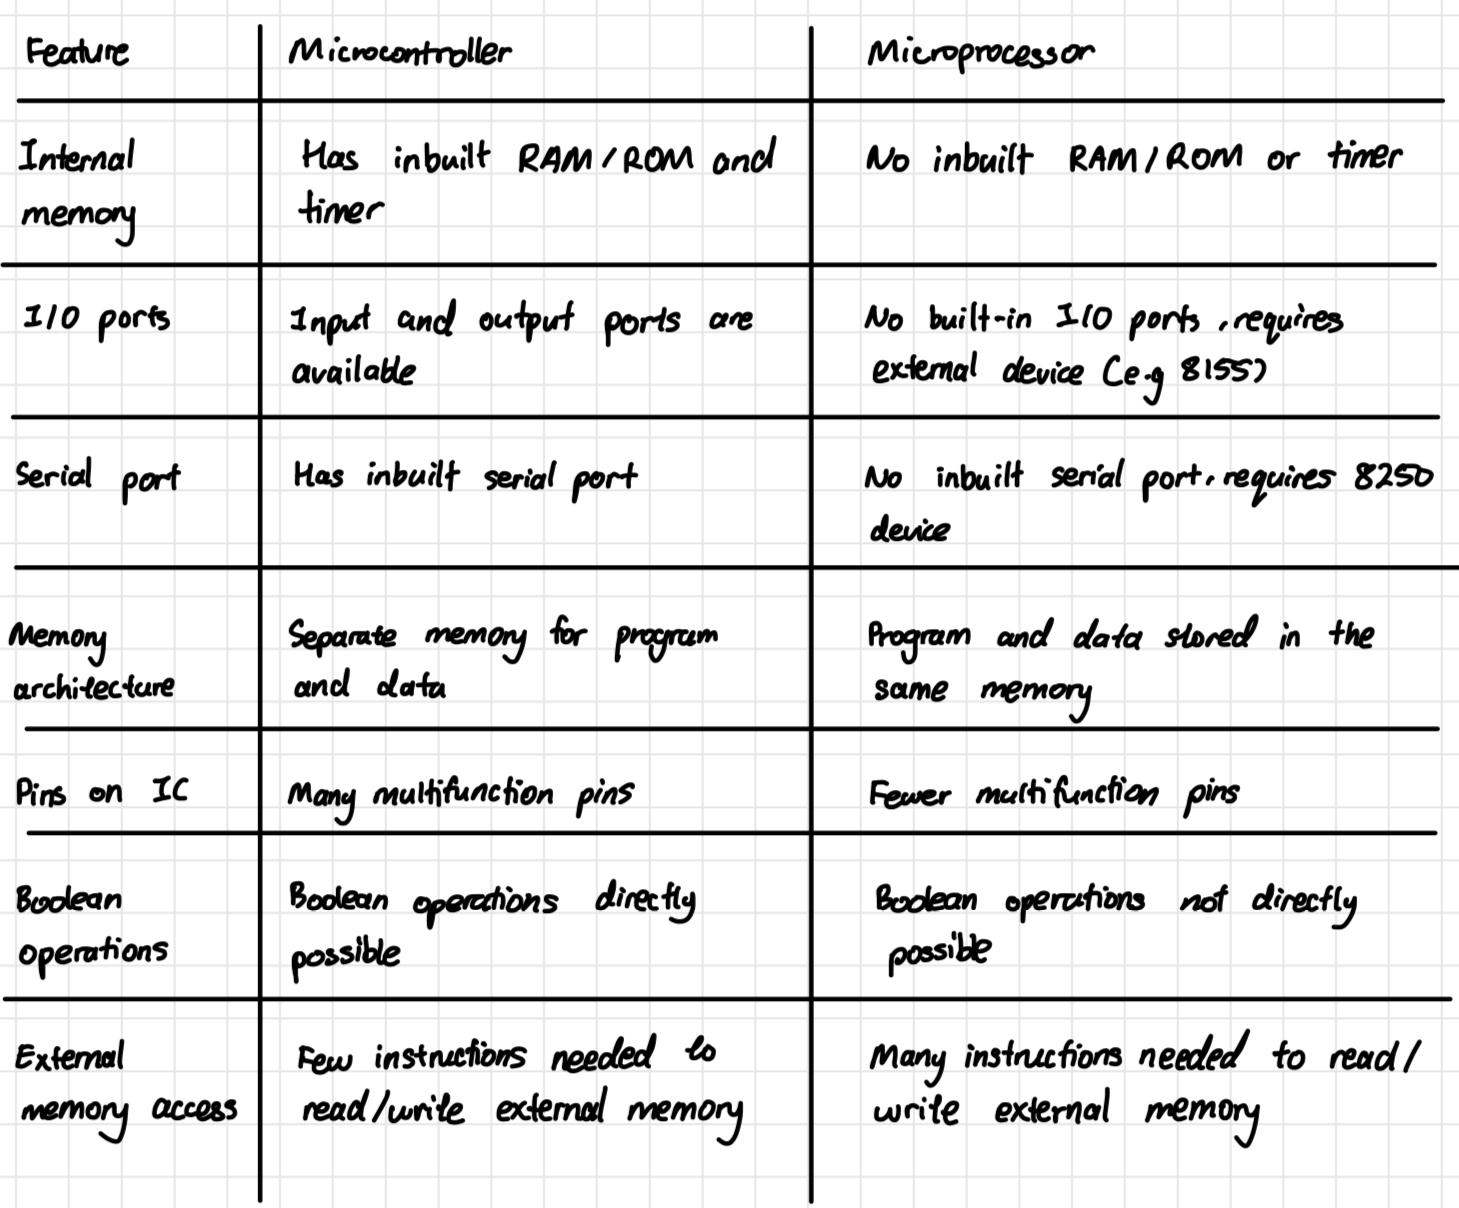 Feature Microcontroller Microprocessor
Internal Has inbuilt RAM/ROM and No inbuilt RAM/ROM or timer
memory timer
I/O ports Input and output ports are No built-in I/O ports, requires
available external device (e.g 8155)
Serial port Has inbuilt serial port No inbuilt serial port, requires 8250
device
Memory Separate memory for program Program and data stored in the
architecture and data same memory
Pins on IC Many multifunction pins Fewer multifunction pins
Boolean Boolean operations directly Boolean operations not directly
operations possible possible
External Few instructions needed to Many instructions needed to read/
memory access read/write external memory write external memory